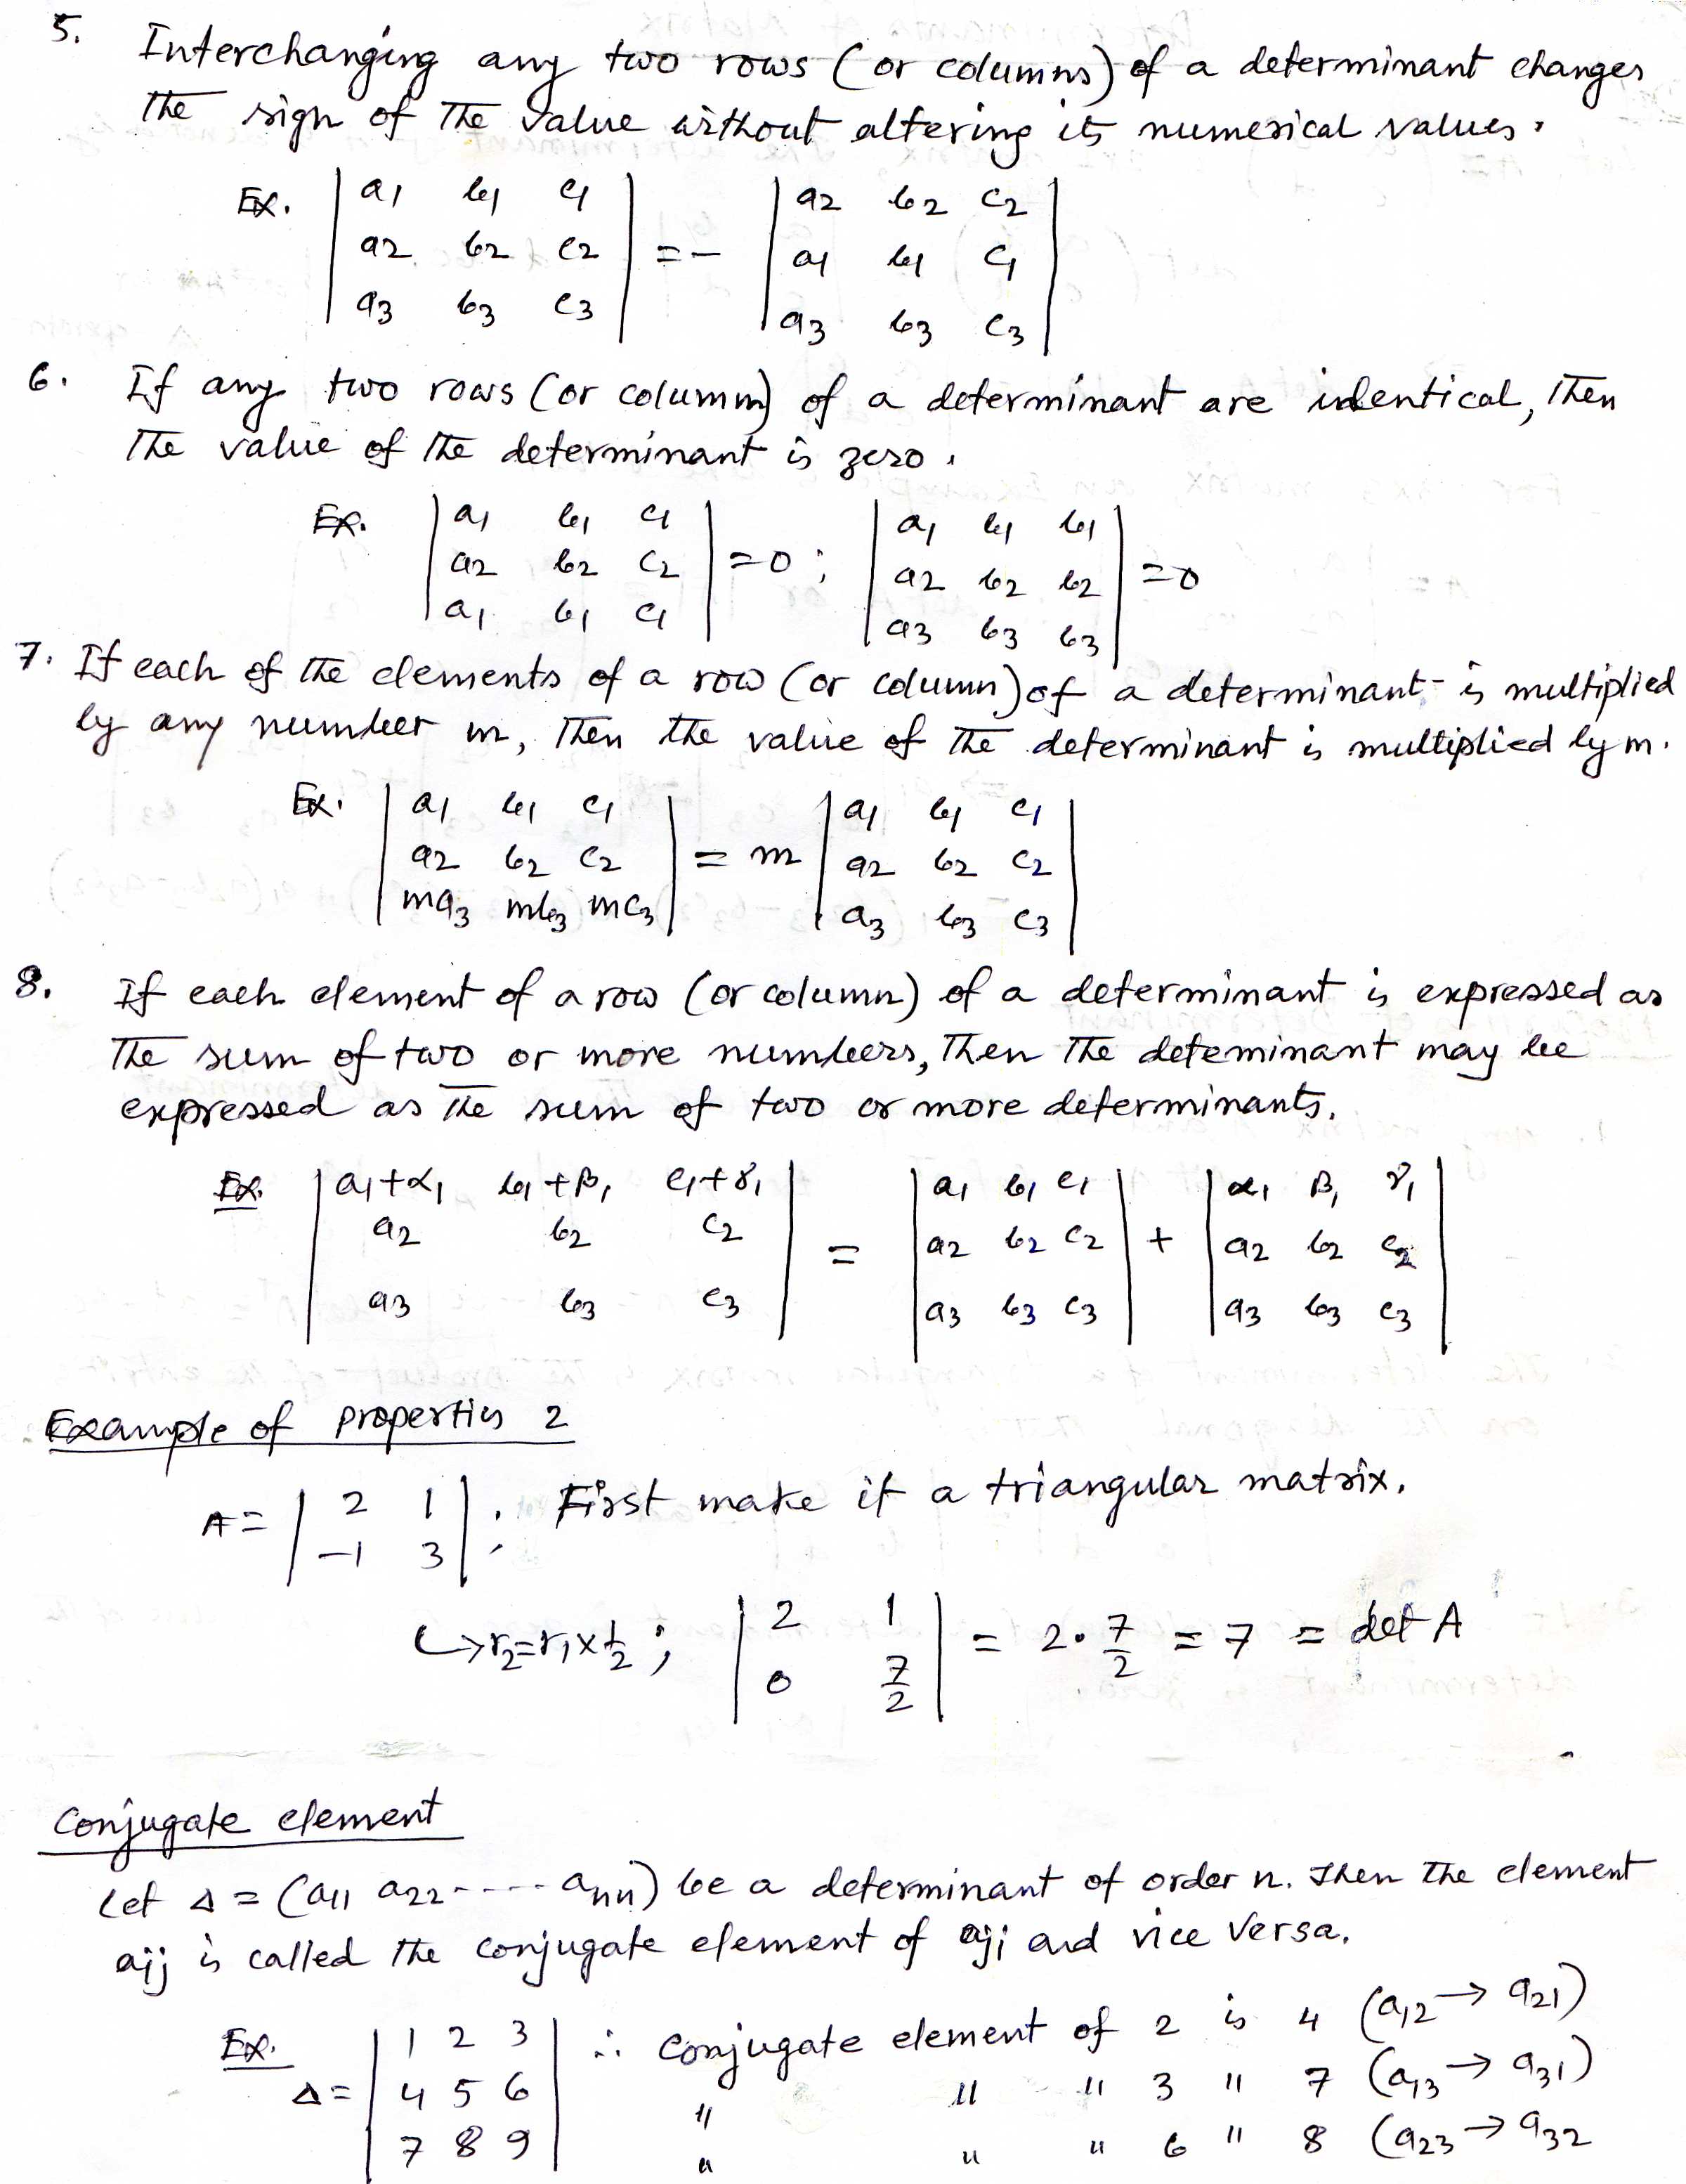 5. Interchanging any two rows (or columns) of a determinant changes
the sign of the value without altering its numerical values.
Ex. | a1 b1 c1 | = - | a2 b2 c2 |
| a2 b2 c2 | | a1 b1 c1 |
| a3 b3 c3 | | a3 b3 c3 |
6. If any two rows (or column) of a determinant are identical, then
the value of the determinant is zero.
Ex. | a1 b1 c1 | = 0 ; | a1 b1 b1 | = 0
| a2 b2 c2 | | a2 b2 b2 |
| a1 b1 c1 | | a3 b3 b3 |
7. If each of the elements of a row (or column) of a determinant is multiplied
by any number m, then the value of the determinant is multiplied by m.
Ex. | a1 b1 c1 | = m | a1 b1 c1 |
| a2 b2 c2 | | a2 b2 c2 |
| ma3 mb3 mc3 | | a3 b3 c3 |
8. If each element of a row (or column) of a determinant is expressed as
the sum of two or more numbers, then the deteminant may be
expressed as the sum of two or more determinants.
Ex. | a1+α1 b1+β1 c1+γ1 | = | a1 b1 c1 | + | α1 β1 γ1 |
| a2 b2 c2 | | a2 b2 c2 | | a2 b2 c2 |
| a3 b3 c3 | | a3 b3 c3 | | a3 b3 c3 |
Example of properties 2
A = | 2 1 | ; First make it a triangular matrix.
| -1 3 |
↳ r2=r1×1/2 ; | 2 1 | = 2·7/2 = 7 = det A
| 0 7/2 |
Conjugate element
Let Δ = (a11 a22 ---- ann) be a determinant of order n. Then the element
aij is called the conjugate element of aji and vice versa.
Ex. Δ = | 1 2 3 | ∴ Conjugate element of 2 is 4 (a12 → a21)
| 4 5 6 | " " " 3 " 7 (a13 → a31)
| 7 8 9 | " " " 6 " 8 (a23 → a32